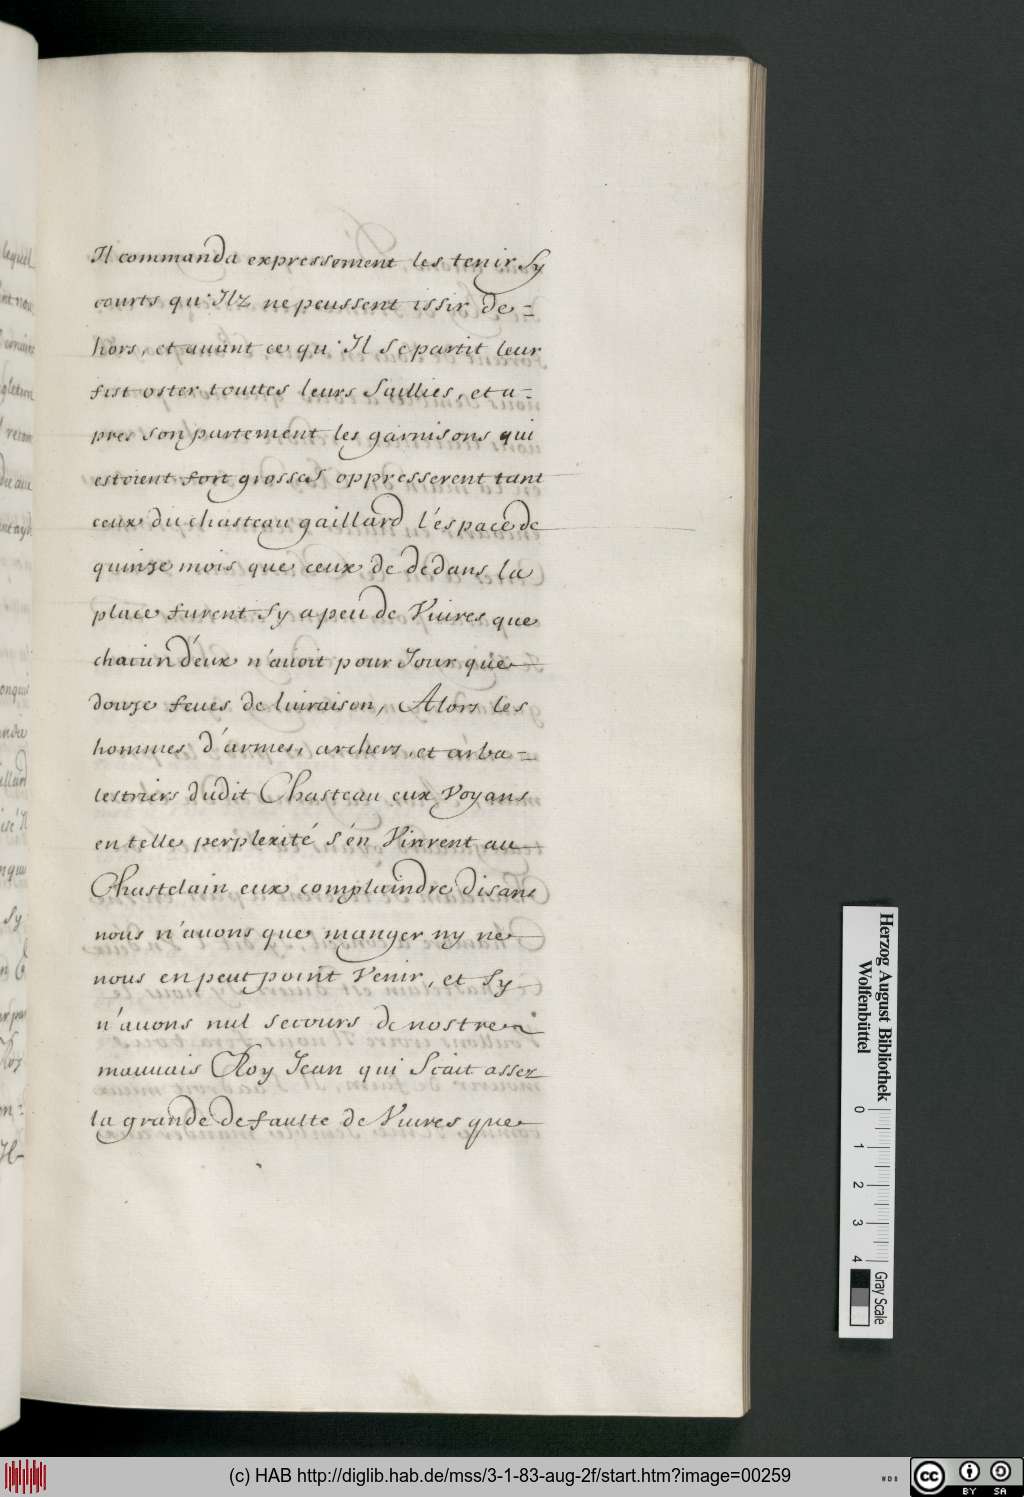 Il commanda expressement les tenir Sy
courts qu'Ilz ne peussent issir de=
hors, et auant ce qu'Il se partit leur
fist oster touttes leurs Saillies, et a=
pres son partement les garnisons qui
estoient fort grosses oppresserent tant
ceux du chasteau gaillard l'éspace de
quinze mois que ceux de dedans la
place furent Sy a peu de Viures que
chacun d'éux n'auoit pour Jour que
douze feues de liuraison, Alors les
hommes d'armes, archers, et arba=
lestriers dudit Chasteau eux Voyans
en telle perplexité s'én Vinrent au
Chastelain eux complaindre disans
nous n'auons que manger ny ne
nous en peut point Venir, et Sy
n'auons nul secours de nostre
mauuais Roy Jean qui Scait assez
la grande defaulte de Viures que
Herzog August Bibliothek
Wolfenbüttel
0 1 2 3 4
Gray Scale
(c) HAB http://diglib.hab.de/mss/3-1-83-aug-2f/start.htm?image=00259
WDB
cc BY SA